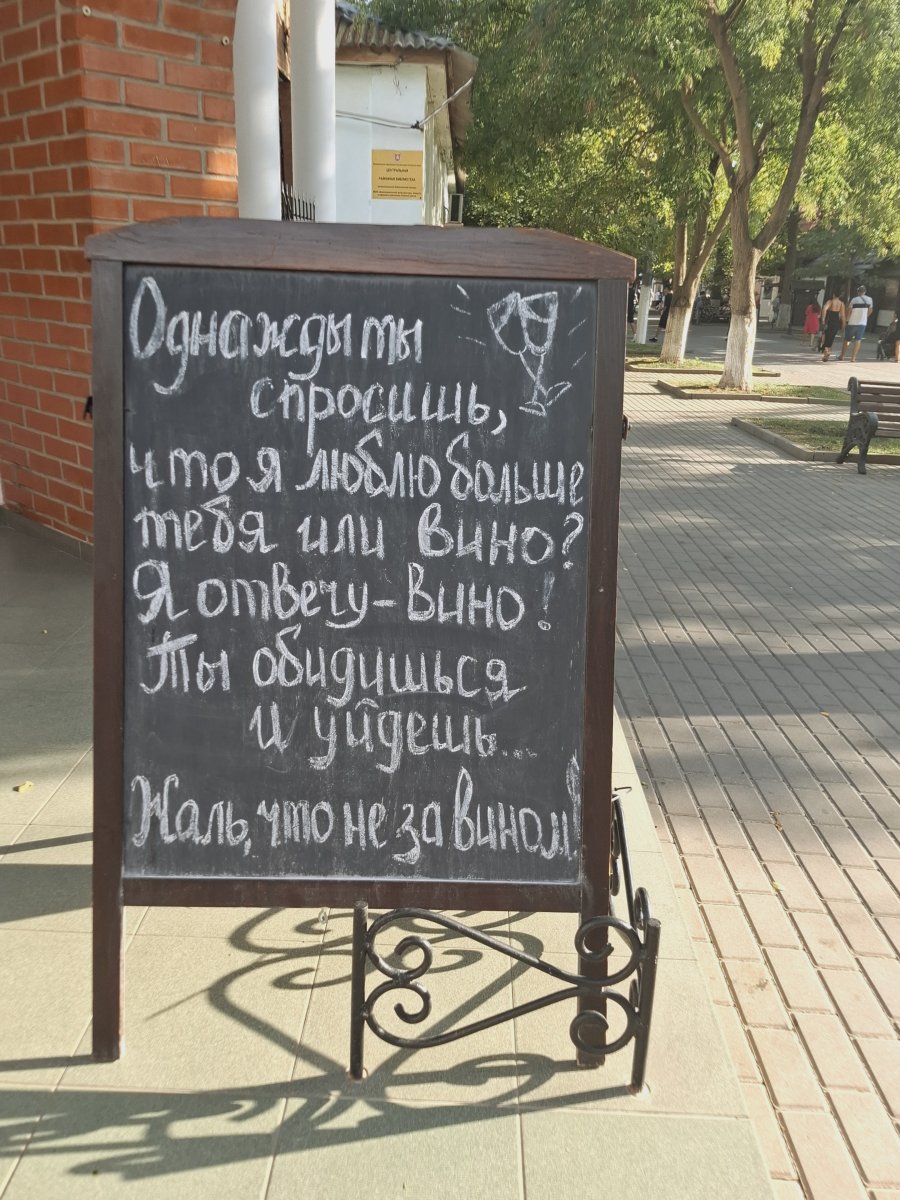 ЦЕНТРАЛЬНАЯ
РАЙОННАЯ БИБЛИОТЕКА
Однажды ты
спросишь,
что я люблю больше
тебя или вино?
Я отвечу - вино!
Ты обидишься
и уйдешь...
Жаль, что не за вином!